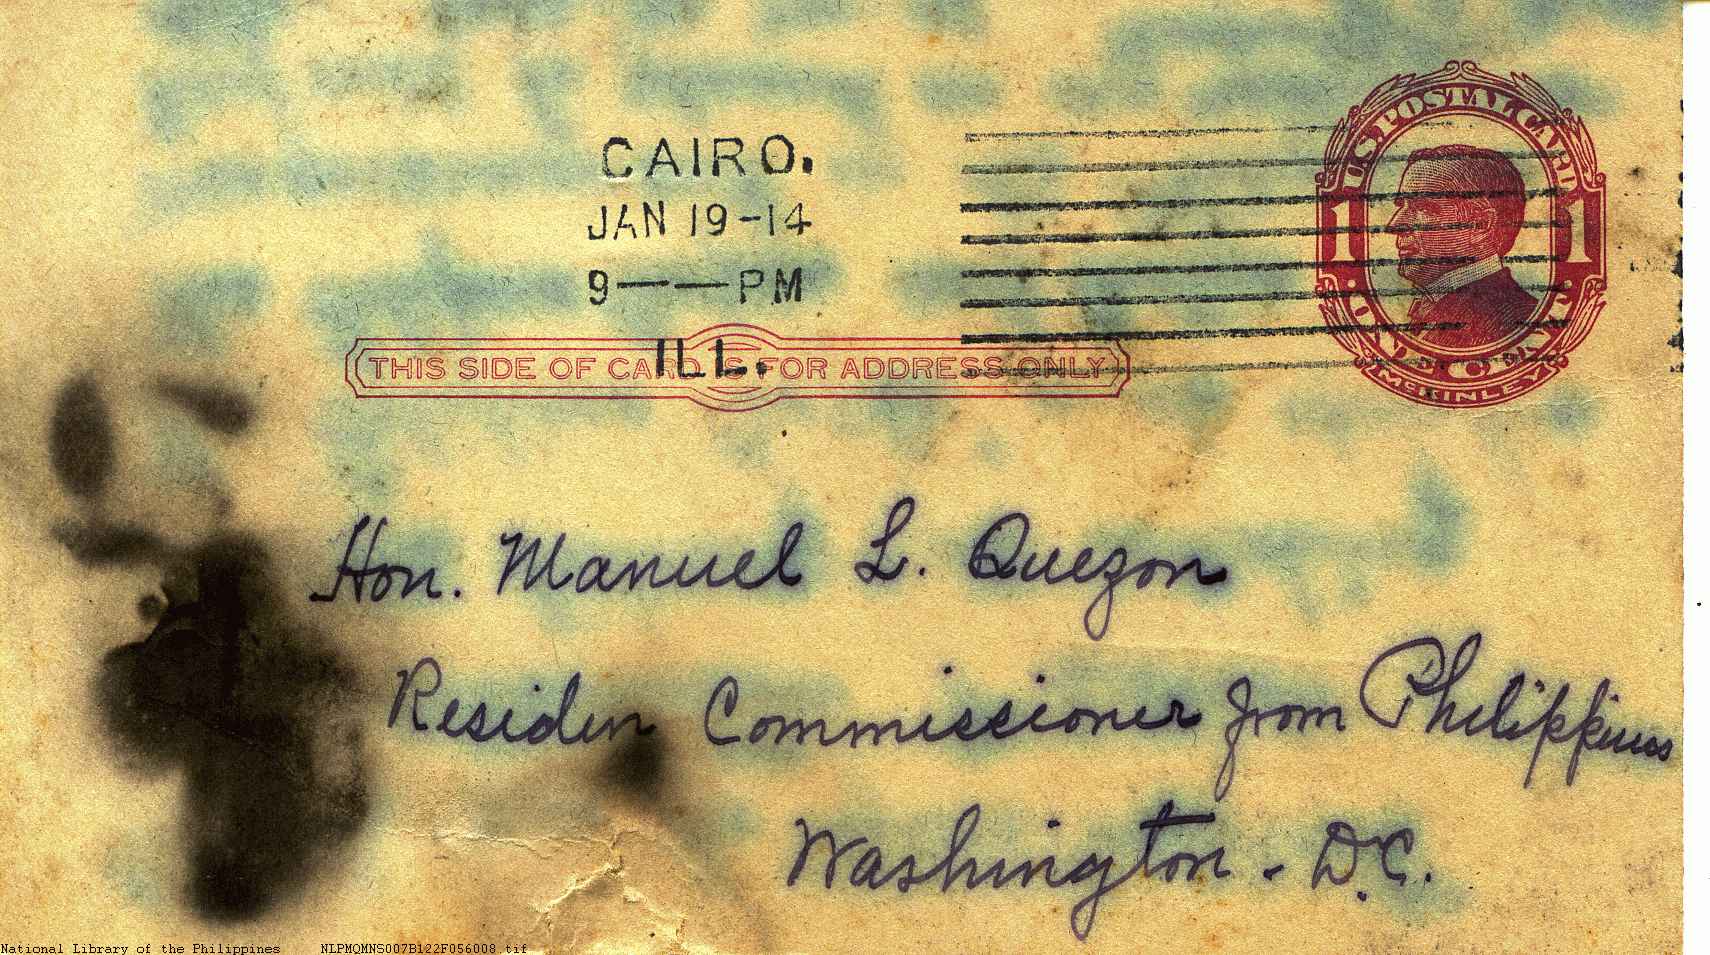 U.S. POSTAL CARD
1 1
· ONE CENT ·
McKINLEY
CAIRO.
JAN 19-14
9——PM
ILL.
THIS SIDE OF CARD IS FOR ADDRESS ONLY
Hon. Manuel L. Quezon
Residen Commissioner from Philippines
Washington - D.C.
National Library of the Philippines NLPMQMNS007B122F056008.tif